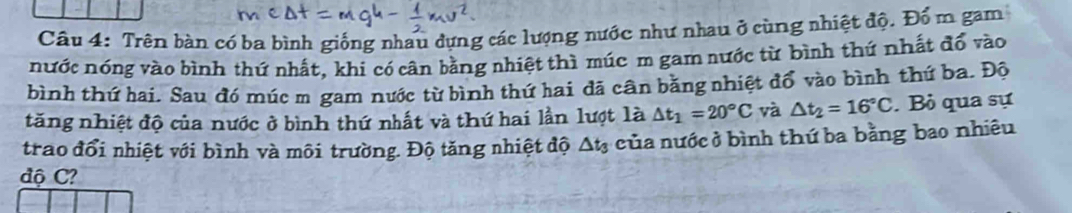 mcΔt = mgh - \frac{1}{2}mv².
Câu 4: Trên bàn có ba bình giống nhau đựng các lượng nước như nhau ở cùng nhiệt độ. Đổ m gam
nước nóng vào bình thứ nhất, khi có cân bằng nhiệt thì múc m gam nước từ bình thứ nhất đổ vào
bình thứ hai. Sau đó múc m gam nước từ bình thứ hai đã cân bằng nhiệt đổ vào bình thứ ba. Độ
tăng nhiệt độ của nước ở bình thứ nhất và thứ hai lần lượt là Δt₁ = 20°C và Δt₂ = 16°C. Bỏ qua sự
trao đổi nhiệt với bình và môi trường. Độ tăng nhiệt độ Δt₃ của nước ở bình thứ ba bằng bao nhiêu
độ C?